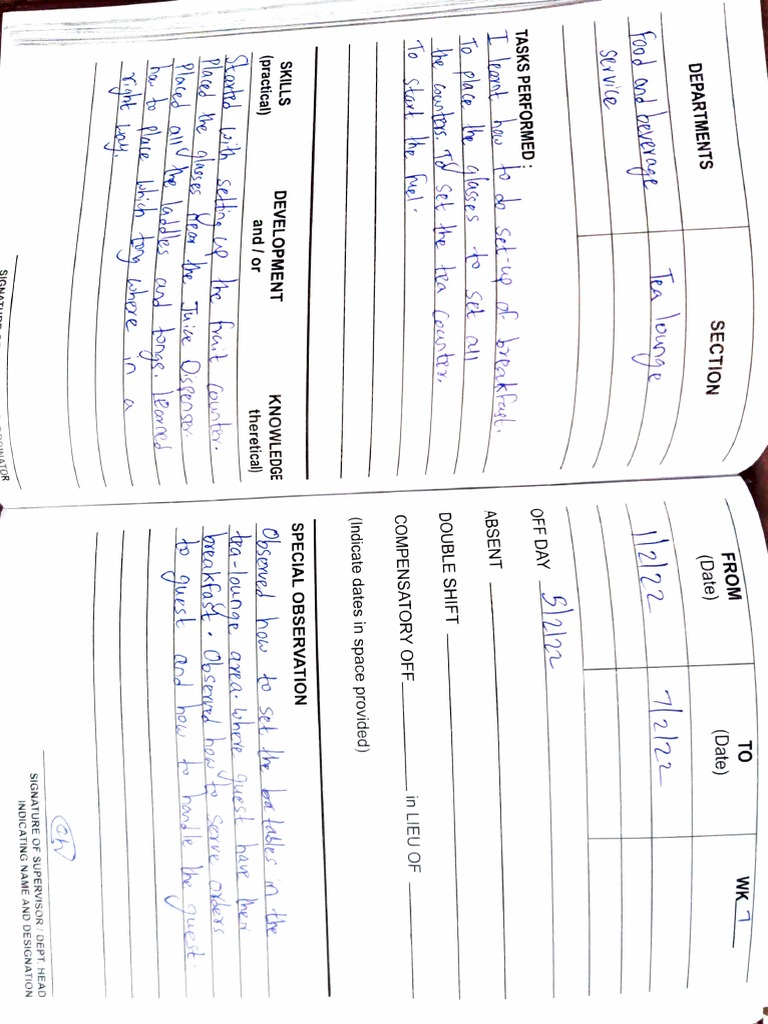 DEPARTMENTS SECTION
Food and beverage Tea lounge
service
TASKS PERFORMED :
I learnt how to do set-up of breakfast.
To place the glasses to set all
the counters. To set the tea counter.
To start the fuel.
SKILLS DEVELOPMENT KNOWLEDGE
(practical) and / or theretical)
Started with setting up the fruit counter.
Placed the glasses near the Juice Dispenser.
Placed all the laddles and tongs. learned
how to place which tong where in a
right way.
FROM TO WK 7
(Date) (Date)
1/2/22 7/2/22
OFF DAY 5/2/22
ABSENT
DOUBLE SHIFT
COMPENSATORY OFF in LIEU OF
(Indicate dates in space provided)
SPECIAL OBSERVATION
Observed how to set the tables in the
tea-lounge area. where guest have their
breakfast. Observed how to serve orders
to guest and how to handle the guest.
SIGNATURE OF SUPERVISOR / DEPT. HEAD
INDICATING NAME AND DESIGNATION